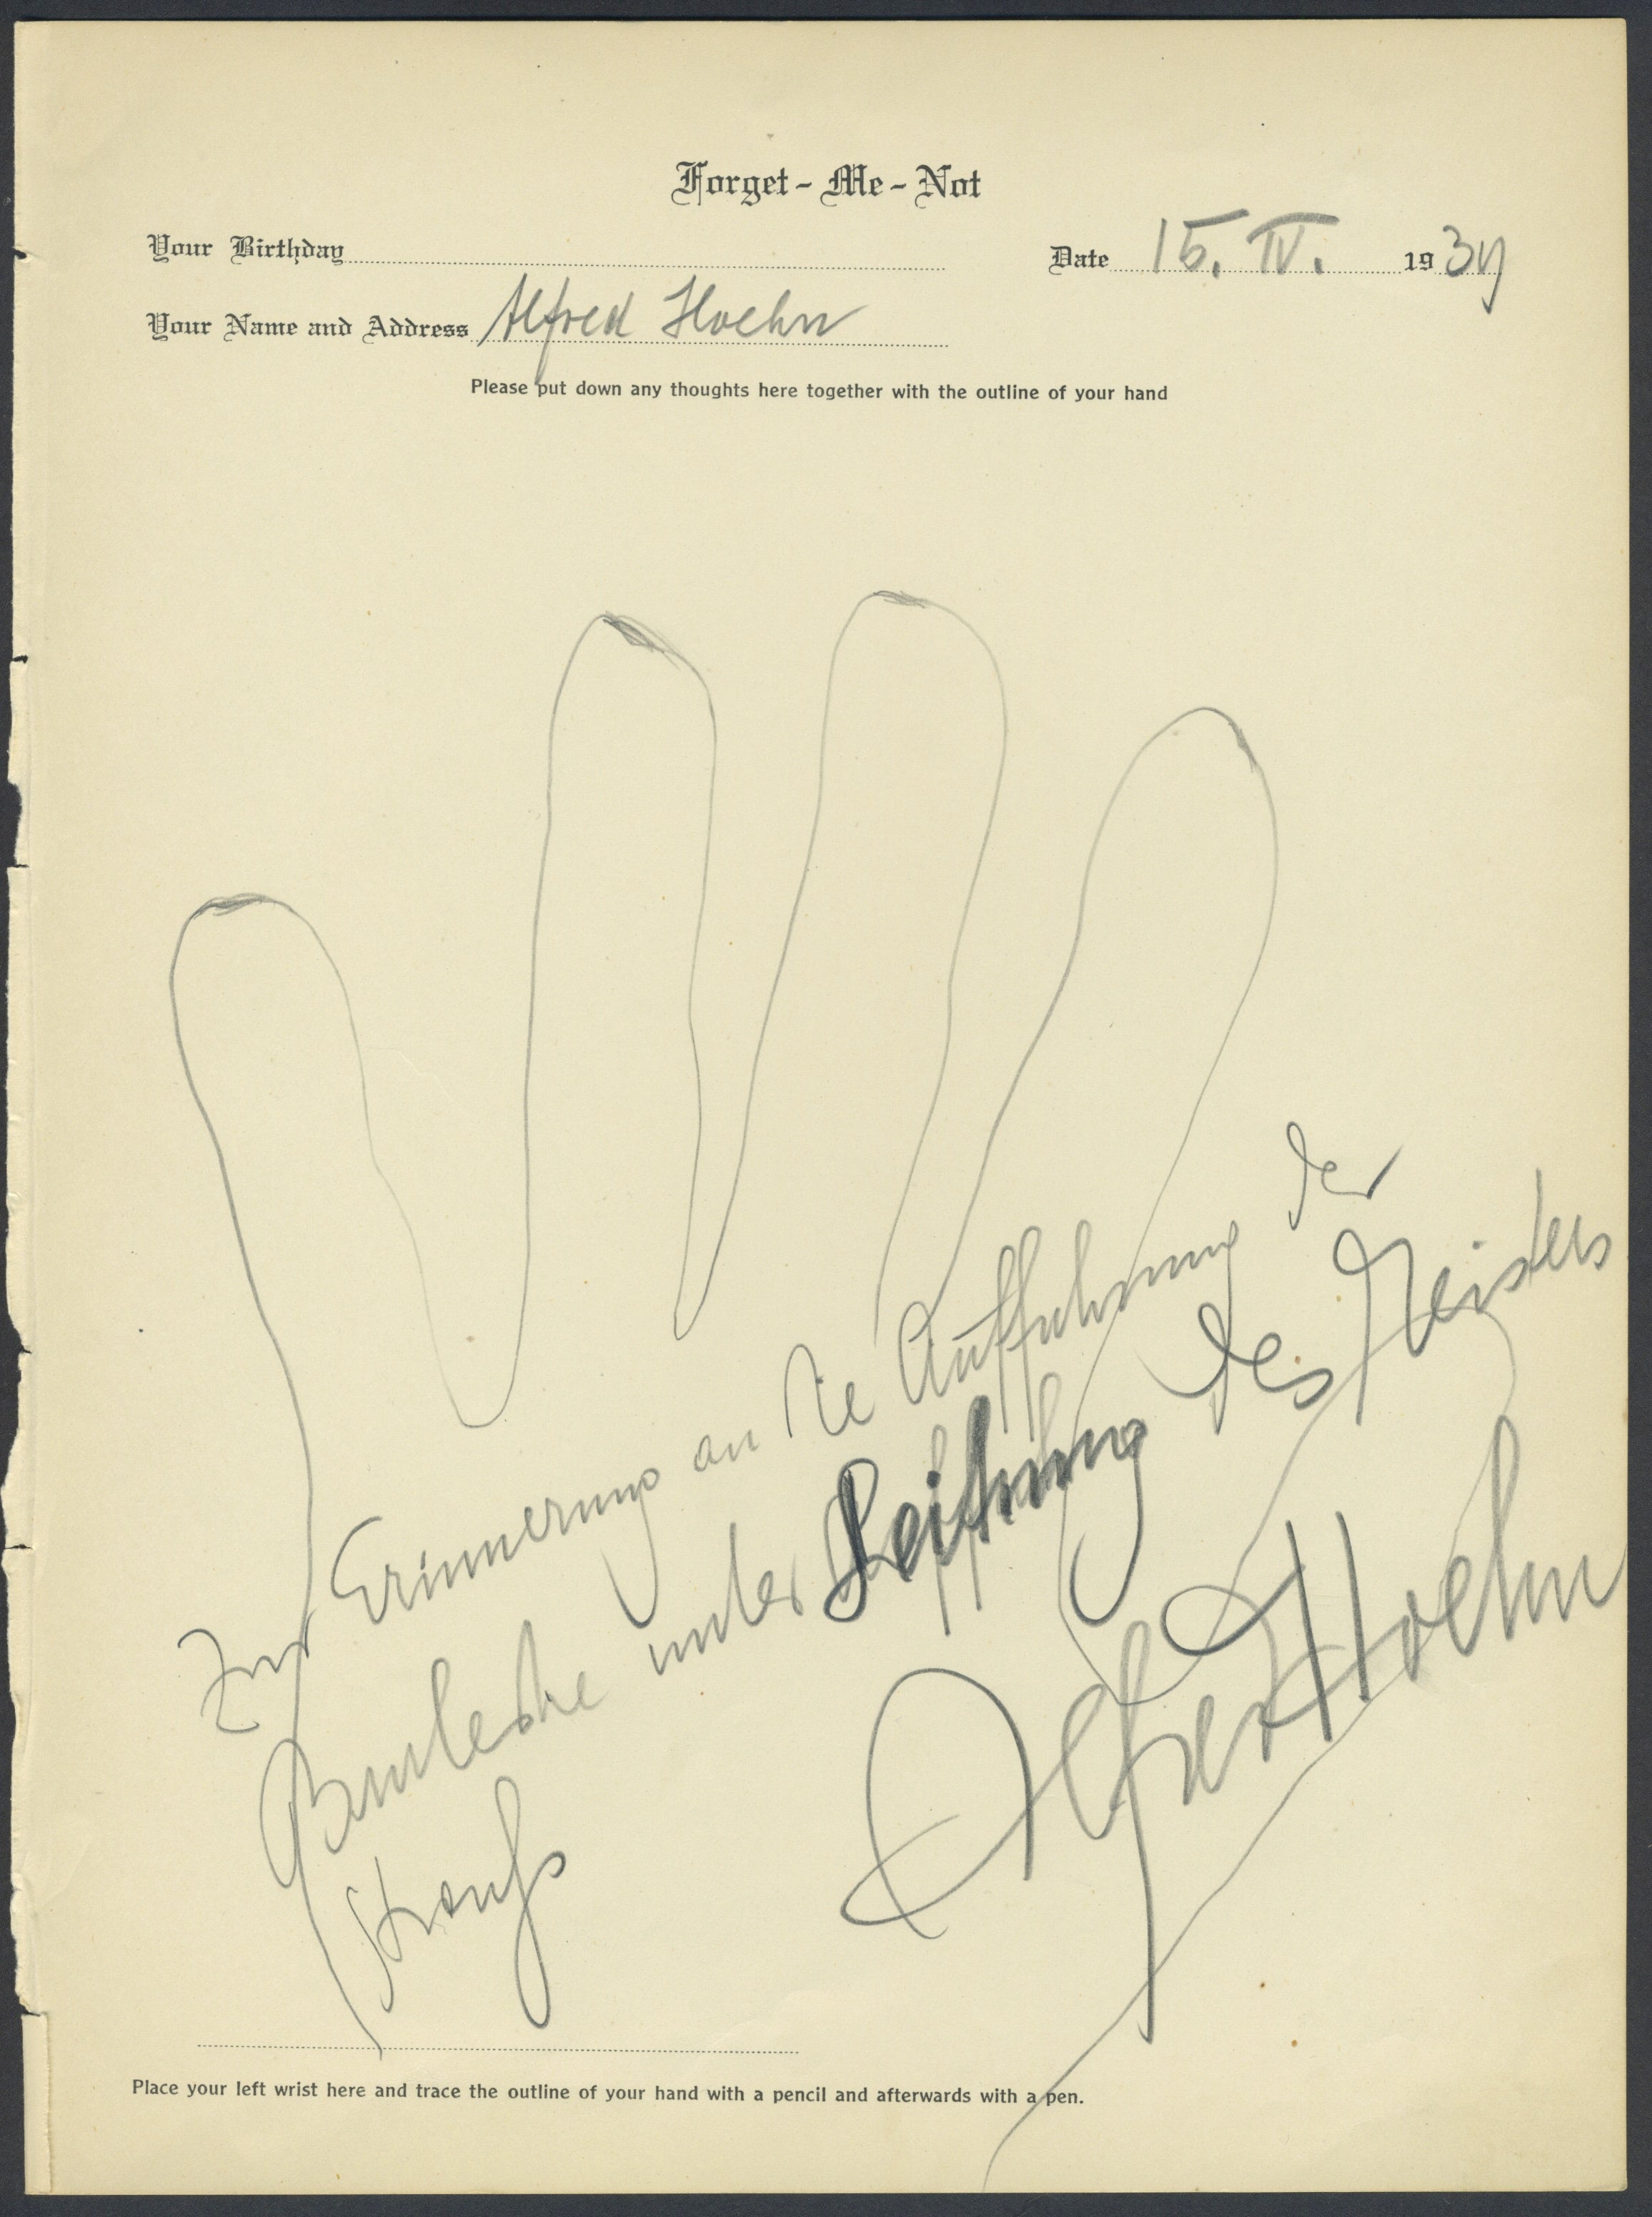 Forget-Me-Not
Your Birthday
Date 15. IV. 1934
Your Name and Address Alfred Hoehn
Please put down any thoughts here together with the outline of your hand
Zur Erinnerung an die Aufführung der
Burleske unter Leitung des Meisters
Strauß
Alfred Hoehn
Place your left wrist here and trace the outline of your hand with a pencil and afterwards with a pen.